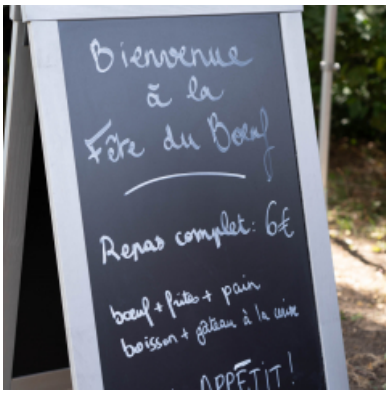 Bienvenue
à la
Fête du Bœuf
Repas complet: 6€
bœuf + frites + pain
boisson + gâteau à la
APPÉTIT !